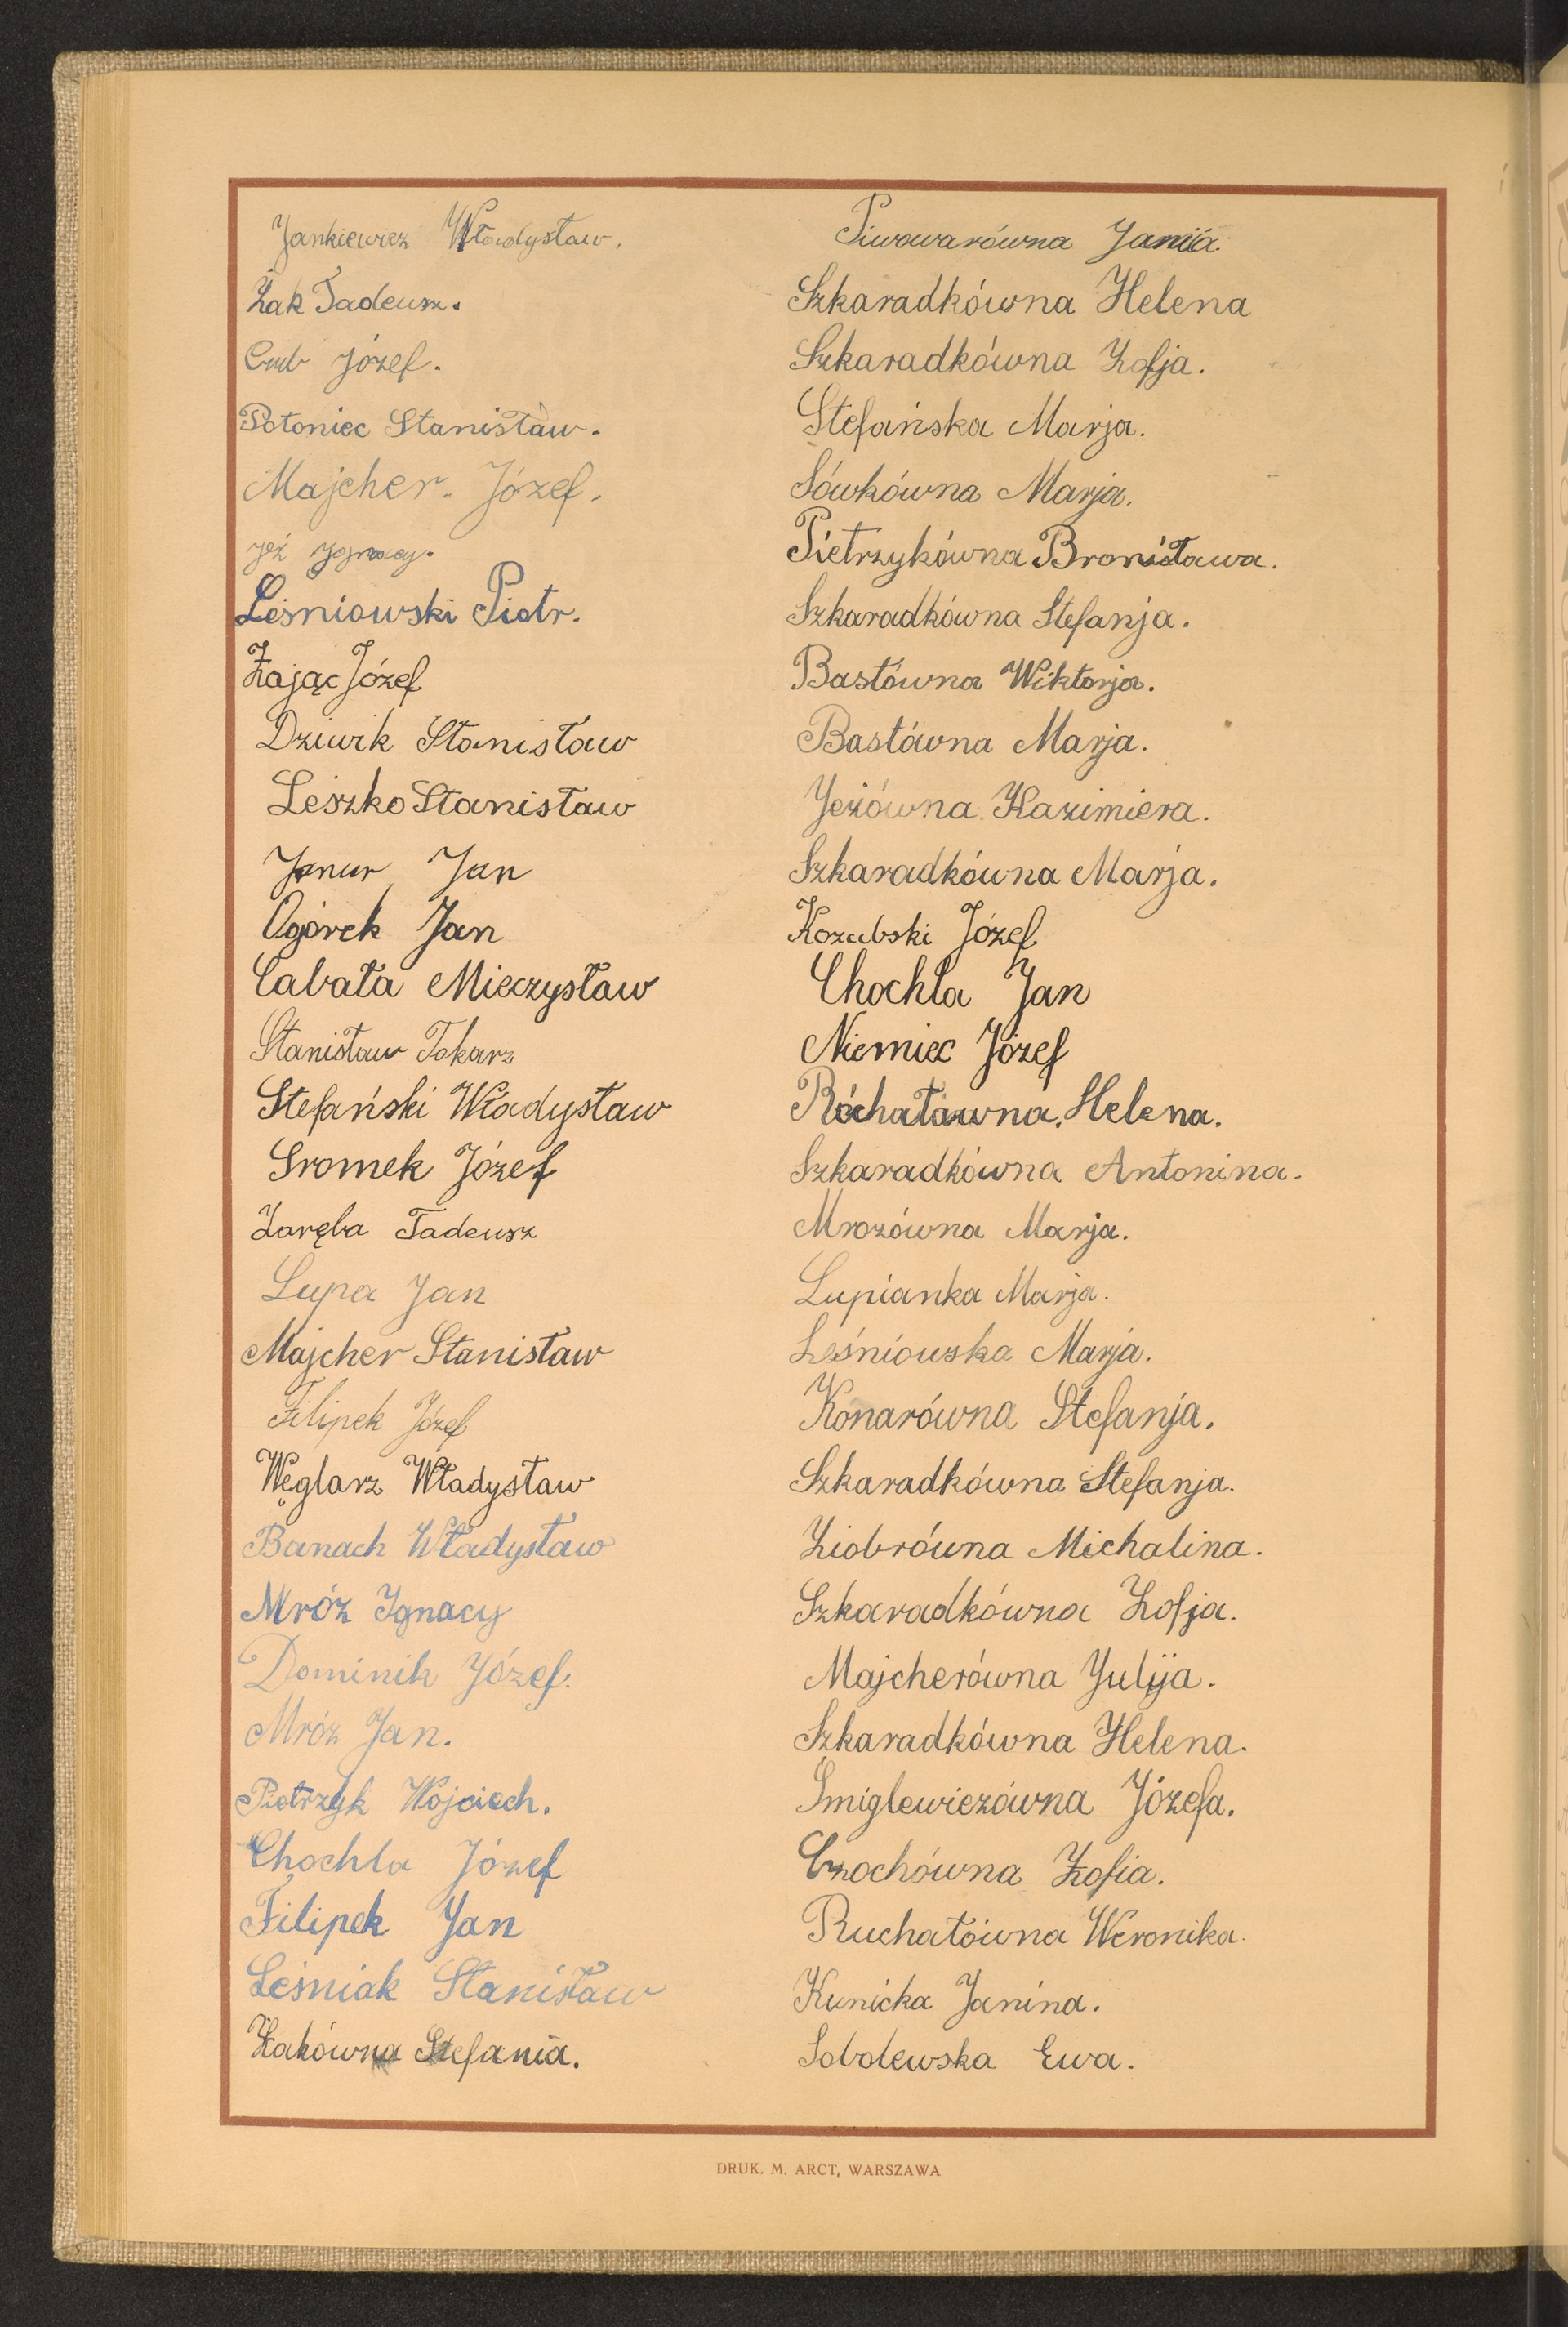 Jankiewicz Władysław.
Żak Tadeusz.
Czub Józef.
Potoniec Stanisław.
Majcher. Józef.
Jeż Ignacy.
Leśniowski Piotr.
Zając Józef
Dziwik Stanisław
Leszko Stanisław
Janur Jan
Ogórek Jan
Cabała Mieczysław
Stanisław Tokarz
Stefański Władysław
Sromek Józef
Zaręba Tadeusz
Lupa Jan
Majcher Stanisław
Filipek Józef
Węglarz Władysław
Banach Władysław
Mróz Ignacy
Dominik Józef.
Mróz Jan.
Pietrzyk Wojciech.
Chochla Józef
Filipek Jan
Leśniak Stanisław
Żakówna Stefania.
Piwowarówna Jania
Szkaradkówna Helena
Szkaradkówna Zofja.
Stefańska Marja.
Sówkówna Marja.
Pietrzykówna Bronisława.
Szkaradkówna Stefanja.
Bastówna Wiktorja.
Bastówna Marja.
Jeżówna Kazimiera.
Szkaradkówna Marja.
Kozubski Józef
Chochla Jan
Niemiec Józef
Róchałówna. Helena.
Szkaradkówna Antonina.
Mrozówna Marja.
Lupianka Marja.
Leśniowska Marja.
Konarówna Stefanja.
Szkaradkówna Stefanja.
Ziobrówna Michalina.
Szkaradkówna Zofja.
Majcherówna Julija.
Szkaradkówna Helena.
Śmiglewiczówna Józefa.
Czochówna Zofia.
Ruchałówna Weronika.
Kunicka Janina.
Sobolewska Ewa.
DRUK. M. ARCT, WARSZAWA